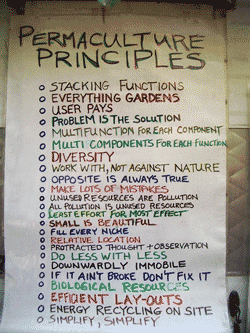 PERMACULTURE
PRINCIPLES
o STACKING FUNCTIONS
o EVERYTHING GARDENS
o USER PAYS
o PROBLEM IS THE SOLUTION
o MULTIFUNCTION FOR EACH COMPONENT
o MULTI COMPONENTS FOR EACH FUNCTION
o DIVERSITY
o WORK WITH, NOT AGAINST NATURE
o OPPOSITE IS ALWAYS TRUE
o MAKE LOTS OF MISTAKES
o UNUSED RESOURCES ARE POLLUTION
o ALL POLLUTION IS UNUSED RESOURCES
o LEAST EFFORT FOR MOST EFFECT
o SMALL IS BEAUTIFUL
o FILL EVERY NICHE
o RELATIVE LOCATION
o PROTRACTED THOUGHT + OBSERVATION
o DO LESS WITH LESS
o DOWNWARDLY IMMOBILE
o IF IT AIN'T BROKE DON'T FIX IT
o BIOLOGICAL RESOURCES
o EFFICIENT LAY-OUTS
o ENERGY RECYCLING ON SITE
o SIMPLIFY, SIMPLIFY